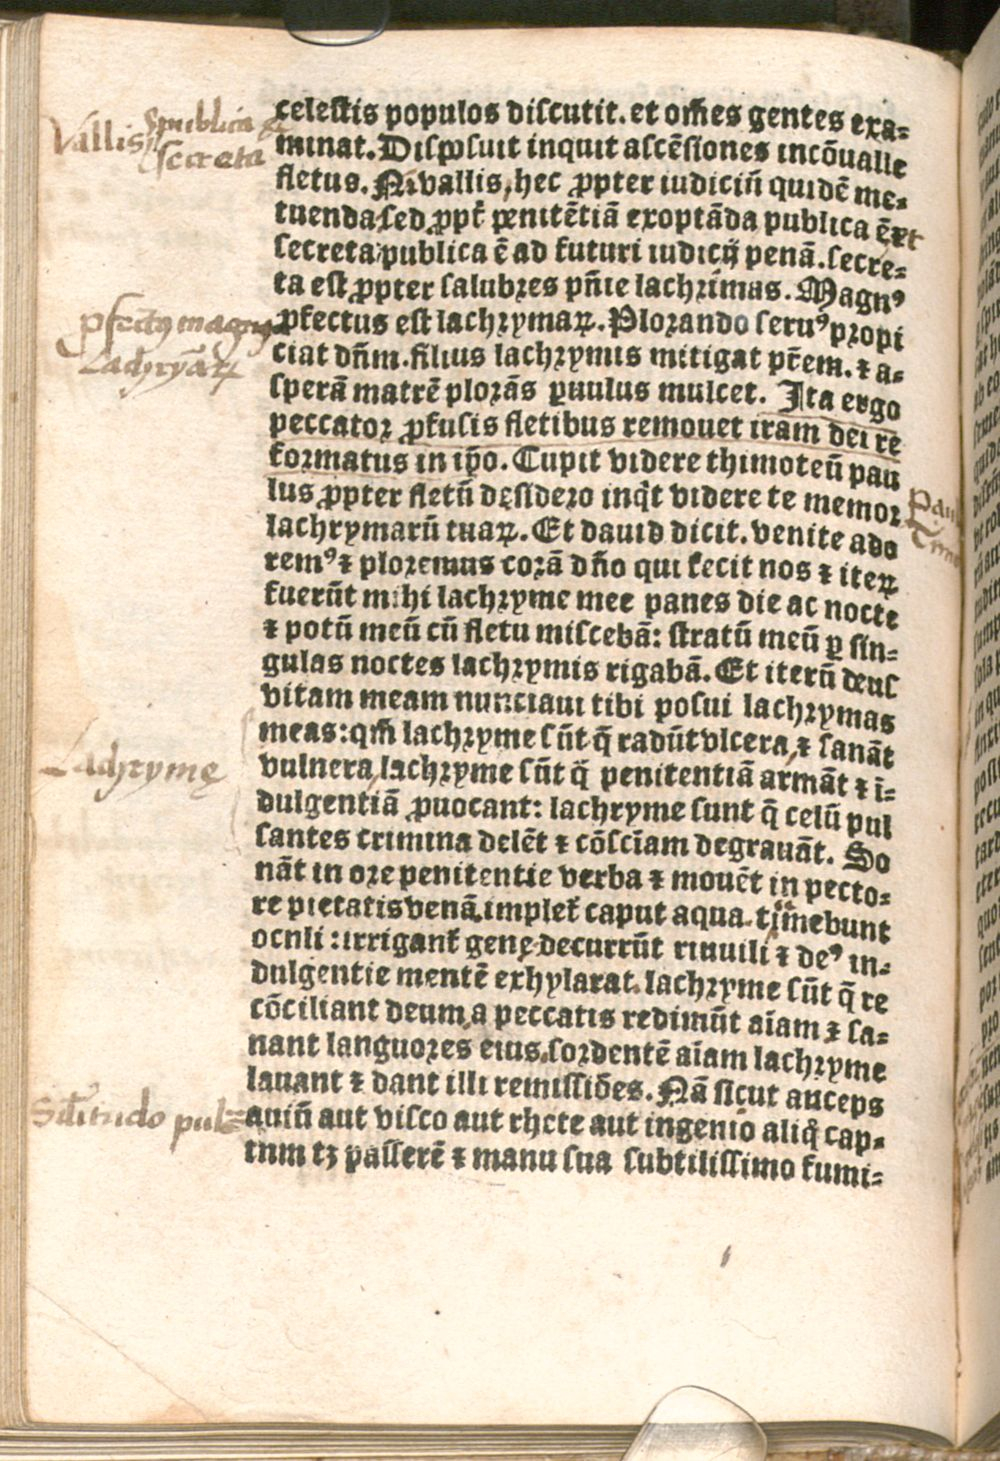 celestis populos discutit. et oм̃es gentes exa-
minat. Disposuit inquit ascẽsiones incõualle
fletus. Nĩ vallis, hec ꝓpter iudiciũ quidẽ me-
tuenda, sed ꝓpt̃ penitẽtiã exoptãda publica ẽ et
secreta, publica ẽ ad futuri iudicij penã. secre-
ta est ꝓpter salubres pñie lachrimas. Magnꝰ
ꝓfectus est lachrymaꝝ. Plorando seruꝰ propi
ciat dñm. filius lachrymis mitigat pr̃em. ⁊ a-
sperã matrẽ plorãs ꝑuulus mulcet. Ita ergo
peccator ꝓfusis fletibus remouet iram dei re
formatus in ip̃o. Cupit videre thimoteũ pau
lus ꝓpter fletũ desidero inqͥt videre te memor
lachrymarũ tuaꝝ. Et dauid dicit. venite ado
remꝰ ⁊ ploremus corã dño qui fecit nos ⁊ iteꝝ
fuerũt mihi lachryme mee panes die ac nocte
⁊ potũ meũ cũ fletu miscebã: stratũ meũ ꝑ sin-
gulas noctes lachrymis rigabã. Et iterũ deus
vitam meam nunciaui tibi posui lachrymas
meas: qm̃ lachryme sũt q̃ radũt vlcera, ⁊ sanãt
vulnera, lachryme sũt q̃ penitentiã armãt ⁊ ĩ-
dulgentiã ꝓuocant: lachryme sunt q̃ celũ pul
santes crimina delẽt ⁊ cõsciam degrauãt. So
nãt in ore penitentie verba ⁊ mouẽt in pecto-
re pietatis venã. implet̃ caput aqua. timebunt
ocnli: irrigant̃ genę. decurrũt riuuili ⁊ deꝰ in-
dulgentie mentẽ exhylarat. lachryme sũt q̃ re
cõciliant deum, a peccatis redimũt aiam ⁊ sa-
nant languores eius. sordentẽ aiam lachryme
lauant ⁊ dant illi remissiões. Nã sicut auceps
auiũ aut visco aut rhete aut ingenio aliqͦ cap-
tum tꝫ passerẽ ⁊ manu sua subtilissimo fumi-
Vallis publica &
secreta
ꝓfectꝰ magnꝰ
Lachrymaꝝ
Pau
Timo
Lachrymę
Silitudo pul